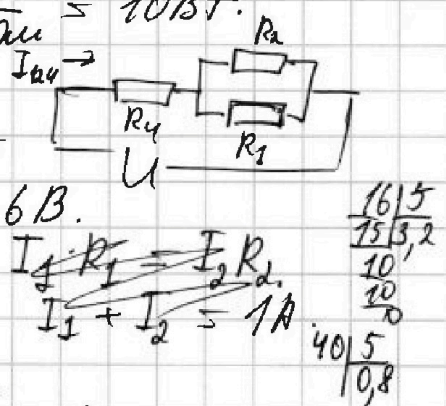 = 10Вт.
R2
I24 →
R4
R1
U
6 В.
I1 · R1 = I2 R2.
I1 + I2 = 1А.
16 | 5
15 | 3,2
10
10
0
40 | 5
0,8